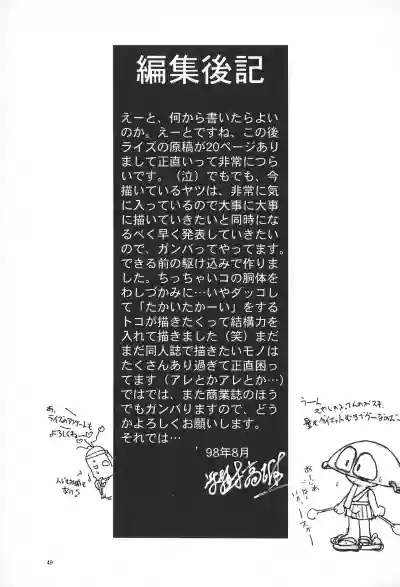 編集後記
えーと、何から書いたらよい
のか。えーとですね、この後
ライズの原稿が20ページあり
まして正直いって非常につら
いです。（泣）でもでも、今
描いているヤツは、非常に気
に入っているので大事に大事
に描いていきたいと同時にな
るべく早く発表していきたい
ので、ガンバってやってます。
できる前の駆け込みで作りま
した。ちっちゃいコの胴体を
わしづかみに…いやダッコし
て「たかいたかーい」をする
トコが描きたくって結構力を
入れて描きました（笑）まだ
まだ同人誌で描きたいモノは
たくさんあり過ぎて正直困っ
てます（アレとかアレとか…）
ではでは、また商業誌のほう
でもガンバりますので、どう
かよろしくお願いします。
それでは…
98年8月
あ、
ライズのアンケートも
よろしくねー
うーん
49